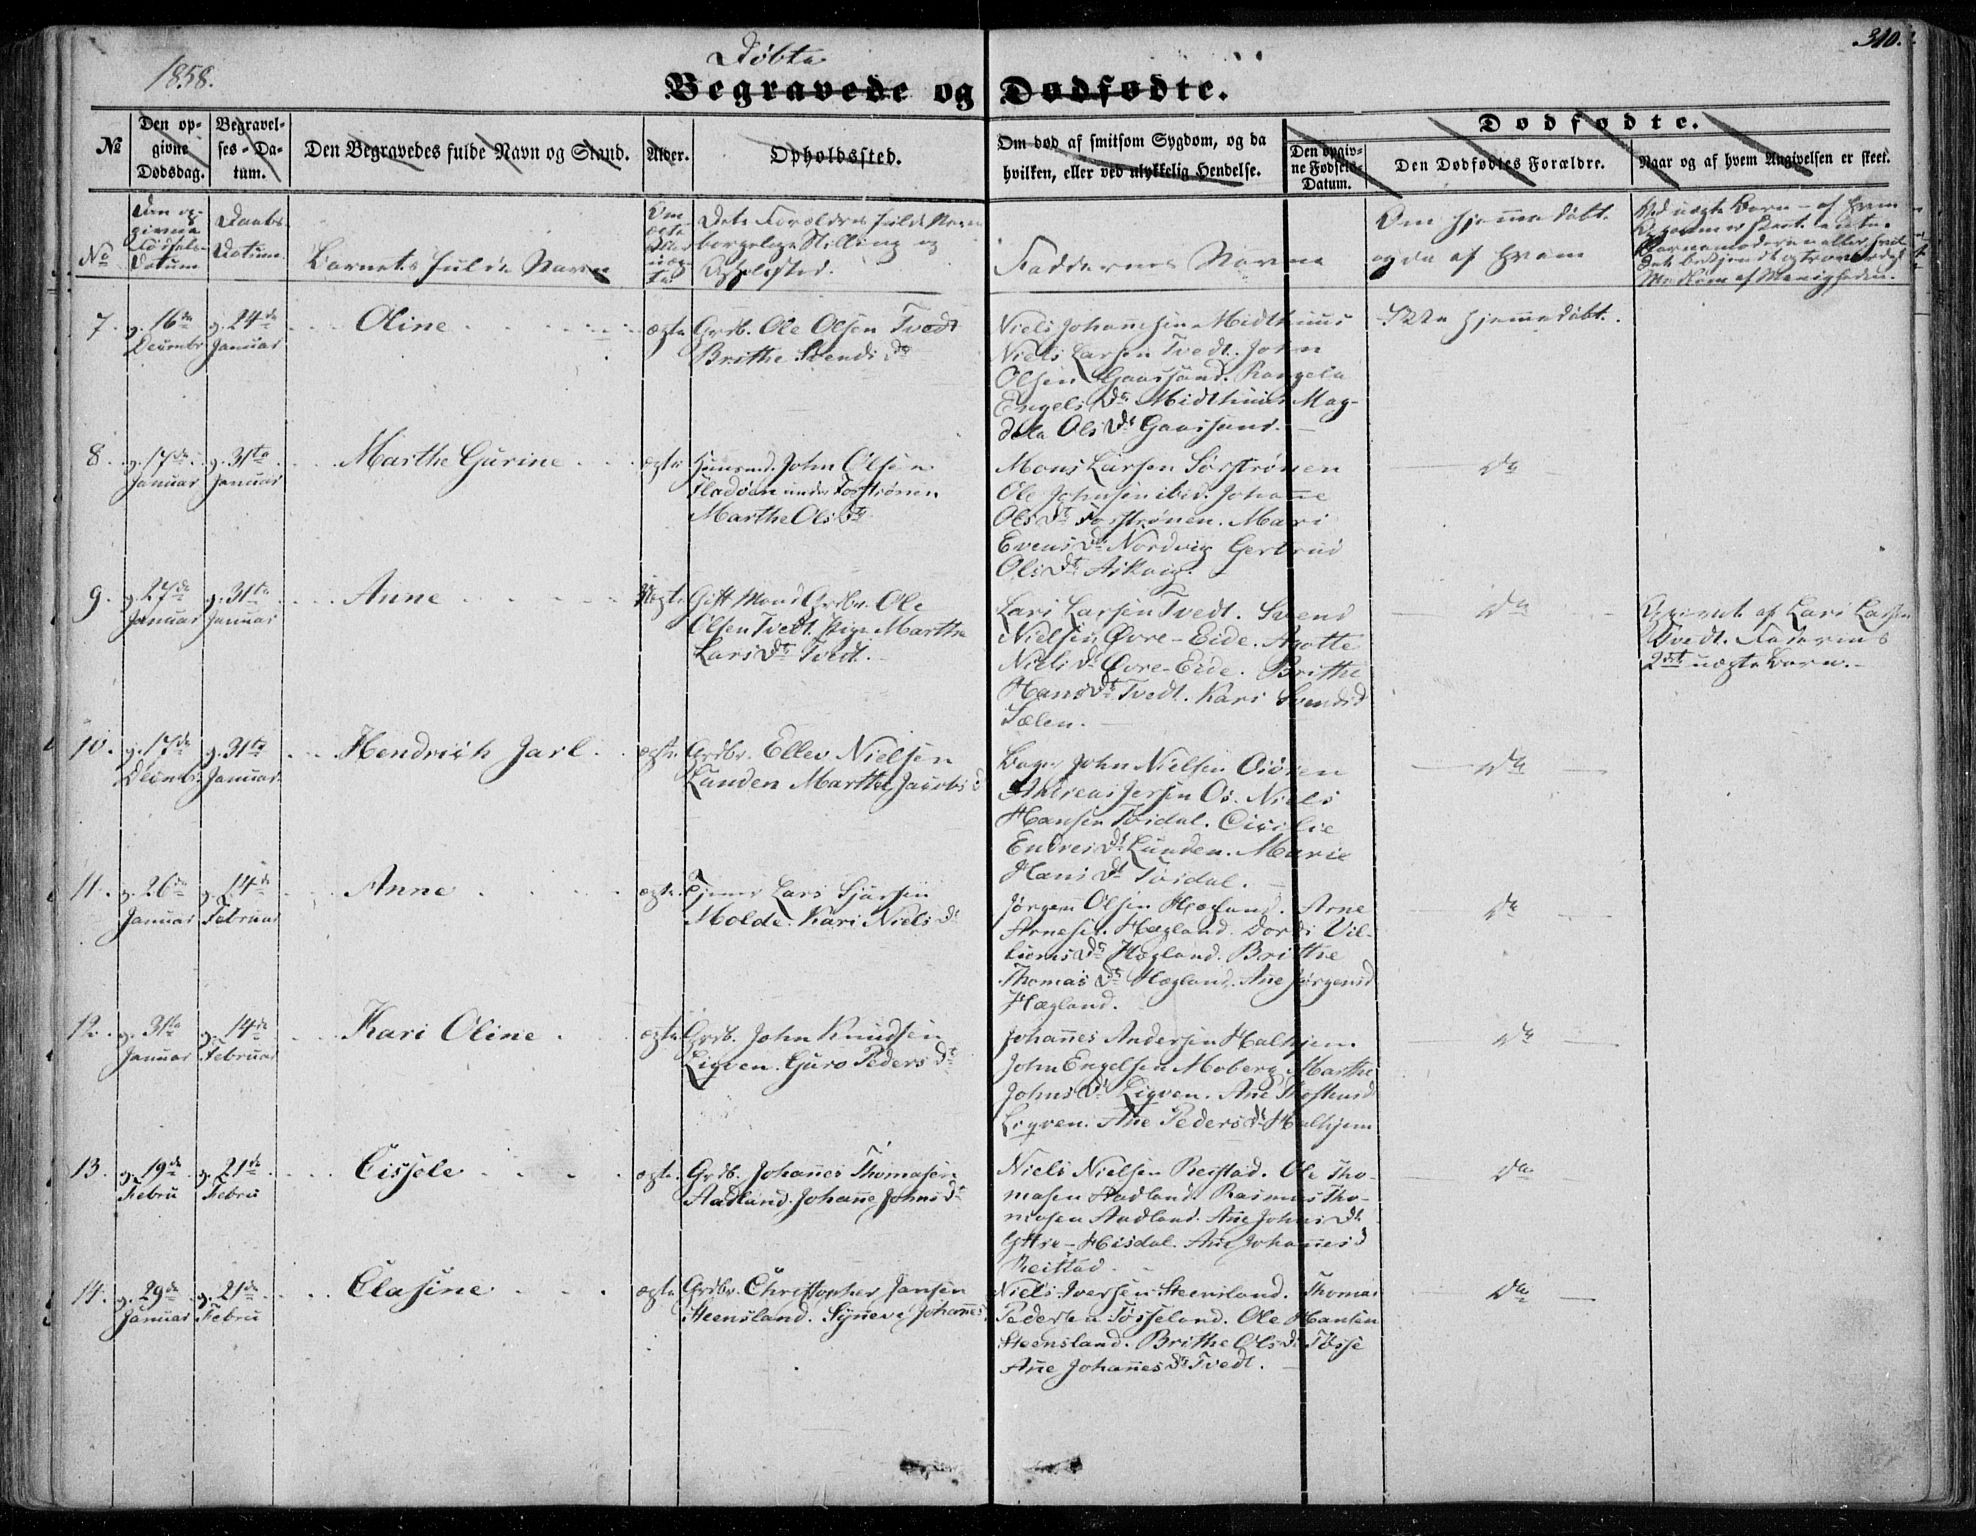 1858.
Døbte
310.
Begravede og Dødfødte.
№
Den op-
givne
Dødsdag.
Begravel-
ses-Da-
tum.
Den Begravedes fulde Navn og Stand.
Alder.
Opholdssted.
Om død af smitsom Sygdom, og da
hvilken, eller ved ulykkelig Hendelse.
Dødfødte.
Den opgiv-
ne Fødsels-
Datum.
Den Dødfødtes Forældre.
Naar og af hvem Angivelsen er skeet.
No
Den op-
givne
Fødsels-
Datum
Daabs-
Datum
Barnets fulde Navn
Om
ægte
eller
uæg-
te
Dets Forældres fulde Navn
borgelige Stilling og
Opholdsted.
Faddernes Navne
Om hjemmedøbt
og da af hvem
7.
g. 16de
Decembr
g. 24de
Januar
Oline
ægte
Grdb. Ole Olsen Tvedt
Brithe Svends Dr
Niels Johannesen Midthuus
Niels Larsen Tvedt. John
Olsen Gaassand. Rangela
Engels Dr Midthuus Mag-
dela Ols Dr Gaassand.
Ikke hjemmedøbt.
8.
g. 17de
Januar
g. 31te
Januar
Marthe Gurine
ægte
Huusmd. John Olsen
Fladøen under Forstrønen
Marthe Ols Dr
Mons Larsen Forstrønen
Ole Johnsen ibid. Johanne
Ols Dr Forstrønen. Mari
Evens Dr Nordvig Gertrud
Ols Dr Askvig.
Do
9.
g. 27de
Januar
g. 31te
Januar
Anne
Uægte
Gift Mand Grdbr. Ole
Olsen Tvedt. Pige Marthe
Lars Dr Tvedt.
Lars Larsen Tvedt. Svend
Nielsen Øvre-Eide. Agotte
Niels D Øvre-Eide. Brithe
Hans Dr Tvedt. Kari Svends d
Sælen.
Do
Opgivet af Lars Larsen
Tvedt. Faderens
2det uægte Barn.
10.
g. 17de
Decembr
g. 31te
Januar
Hendrich Jarl
ægte
Grdbr. Ellev Nielsen
Lunden Marthe Jacobs d
Bager John Nielsen Osøren
Andreas Jersen Os. Niels
Hansen Tøsdal. Cicilie
Endres Dr Lunden. Marie
Hans Dr Tøsdal.
Do
11.
g. 26de
Januar
g. 14de
Februar
Anne
ægte
Tjener Lars Sjursen
Molde. Kari Niels Dr
Jørgen Olsen Hægland. Arne
Arnesen Hægland. Dordi Vil-
liems Dr Hægland. Brithe
Thomas Dr Hægland. Ane Jørgens d
Hægland.
Do
12.
g. 31te
Januar
g. 14de
Februar
Kari Oline
ægte
Grdb. John Knudsen
Liqven. Guro Peders Dr
Johannes Andersen Halhjem
John Engelsen Moberg Marthe
Johns Dr Liqven. Ane
Liqven. Ane Peders Dr Halhjem
Do
13.
g. 19de
Febru
g. 21de
Febru
Cissele
ægte
Grdb. Johanes Thomasen
Aadland. Johanne Johns Dr
Niels Nielsen Reistad. Ole Tho-
masen Aadland. Rasmus Tho-
masen Aadland. Ane Johns Dr
Yttre-Hisdal. Ane Johannes d
Reistad.
Do
14.
g. 29de
Januar
g. 21de
Febru
Clasine
ægte
Grdbr. Christopher Jansen
Steensland. Synneve Johannes
Niels Iversen Steensland. Thomas
Pedersen Tøsseland. Ole Hansen
Steensland. Brithe Ols D Tøsse
Ane Johannes Dr Tvedt.
Do